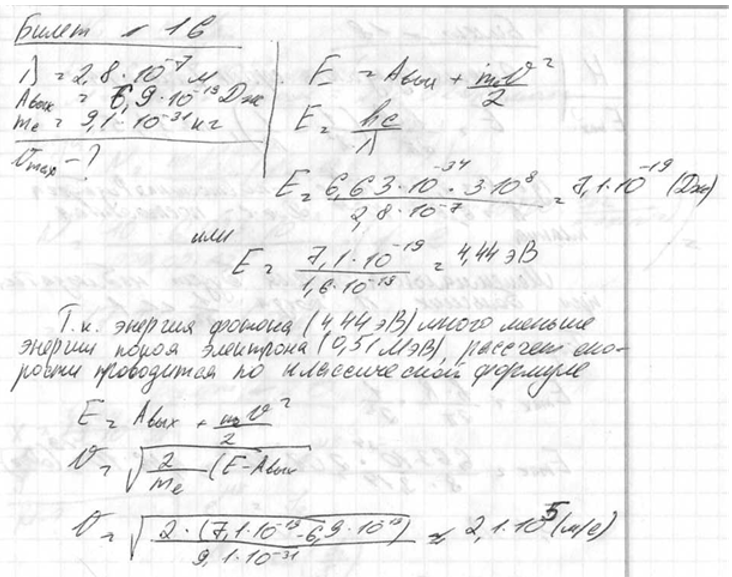 Билет № 16
λ = 2,8·10⁻⁷ м
Aвых = 6,9·10⁻¹⁹ Дж
mₑ = 9,1·10⁻³¹ кг
υmax - ?
E = Aвых + m₀υ²/2
E = hc/λ
E = 6,63·10⁻³⁴·3·10⁸/2,8·10⁻⁷ = 7,1·10⁻¹⁹ (Дж)
или
E = 7,1·10⁻¹⁹/1,6·10⁻¹⁹ = 4,44 эВ
Т.к. энергия фотона (4,44 эВ) много меньше
энергии покоя электрона (0,51 МэВ), рассчет ско-
рости проводится по классической формуле
E = Aвых + m₀υ²/2
υ = √(2/mₑ (E - Aвых
υ = √(2·(7,1·10⁻¹⁹ - 6,9·10⁻¹⁹)/9,1·10⁻³¹) ≈ 2,1·10⁵ (м/с)